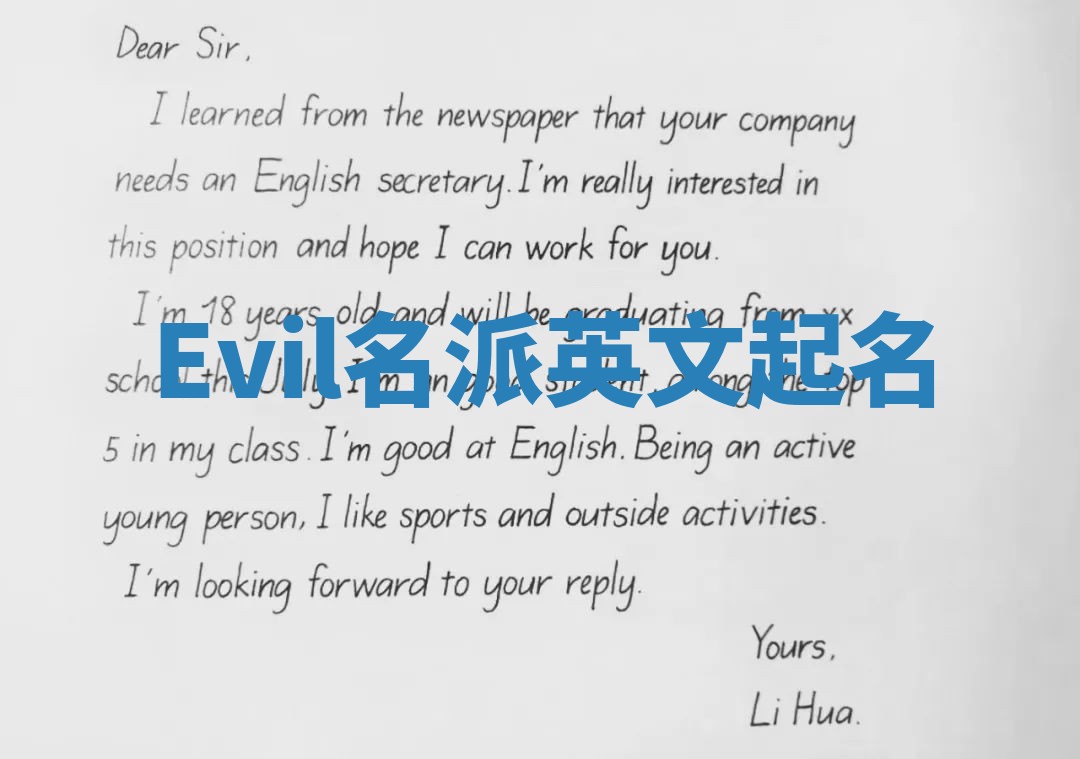 Dear Sir,
I learned from the newspaper that your company
needs an English secretary. I'm really interested in
this position and hope I can work for you.
I'm 18 years old and will be graduating from xx
Evil名派英文起名
school this July. I'm an good student, among the top
5 in my class. I'm good at English. Being an active
young person, I like sports and outside activities.
I'm looking forward to your reply.
Yours,
Li Hua.